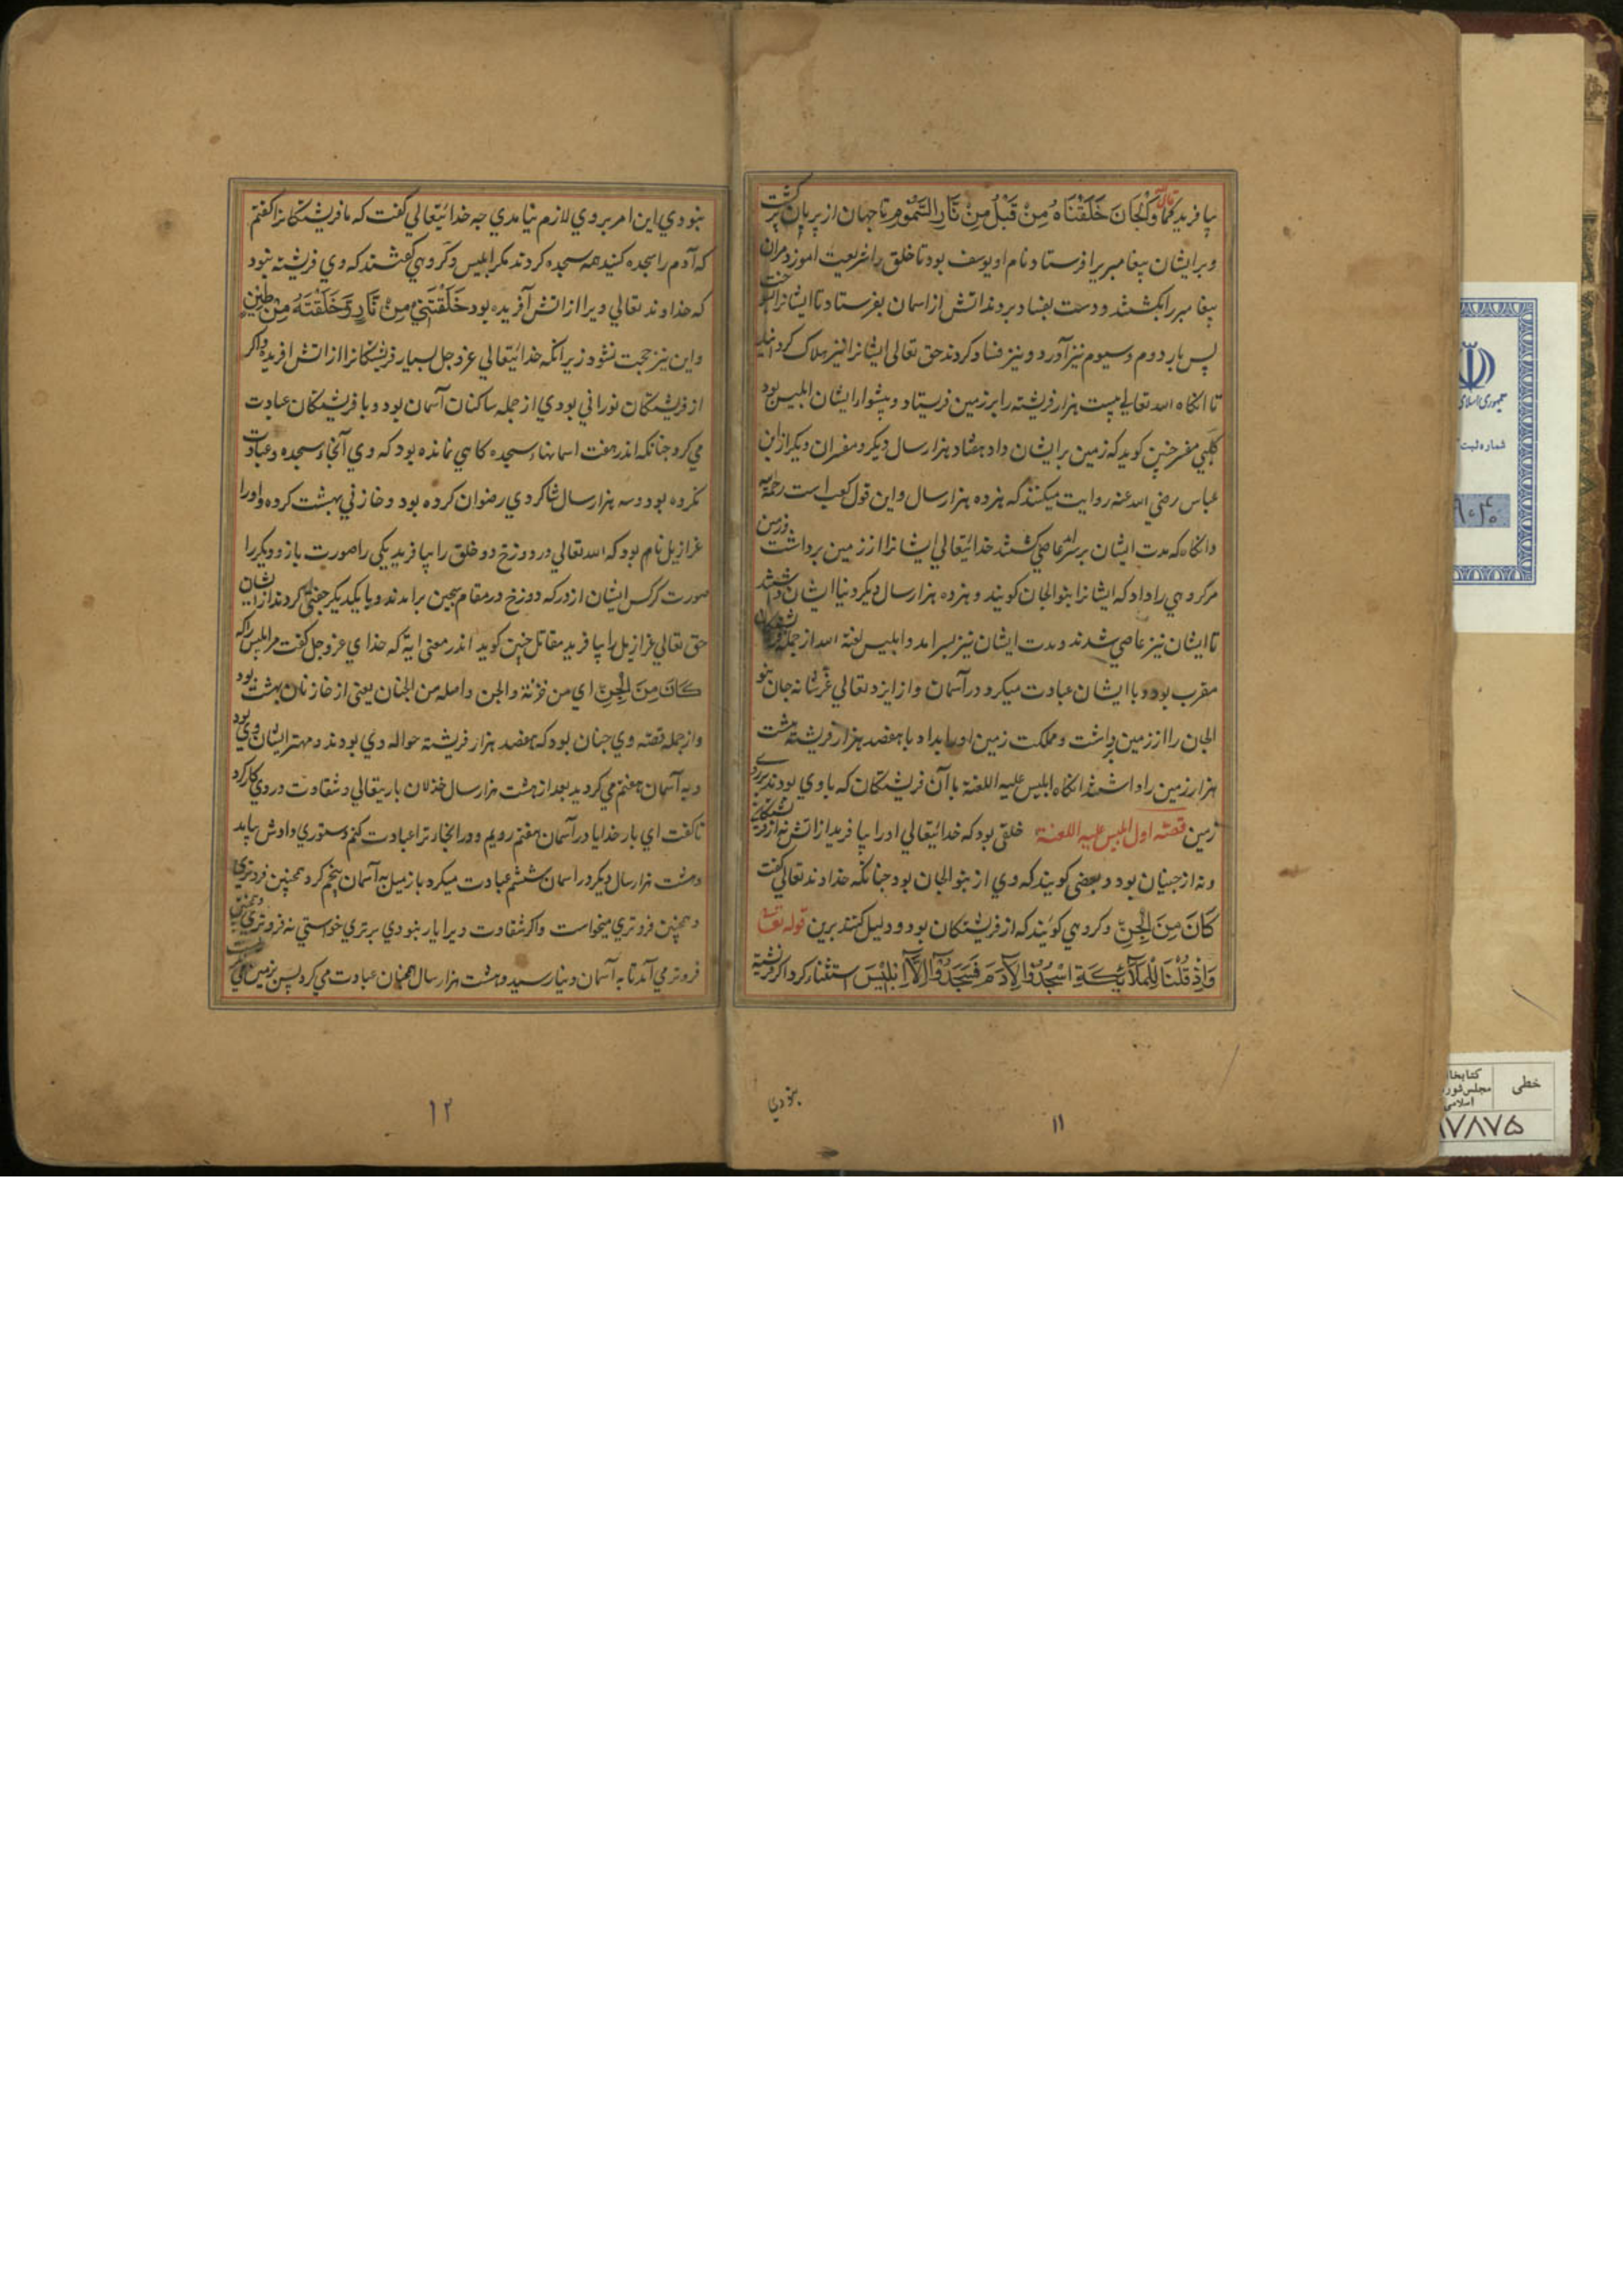 بیافرید کما قال الله وَالْجَانَّ خَلَقْنَاهُ مِنْ قَبْلُ مِنْ نَارِ السَّمُومِ تا جهان از پریان پر کشت
و بر ایشان پیغامبریرا فرستاد نام او یوسف بود تا خلق را شریعت اموزد مران
پیغامبر را بکشتند و دست بفساد بردند اتش از اسمان بفرستاد تا ایشانرا
پس بار دوم و سیوم نیز آورد و نیز فساد کردند حق تعالی ایشانرا نیز هلاک کرد
تا انکاه الله تعالی بیست هزار فرشته را بر زمین فرستاد و پیشوا ایشان ابلیس بود
کلبی مفسر چنین کوید که زمین بر ایشان داد هفتاد هزار سال دیکر و مفسران دیکر از ابن
عباس رضی الله عنه روایت میکنند که هژده هزار سال و این قول کعب است رحمه الله
و انکاه که مدت ایشان بر عاصی کشتند خدایتعالی ایشانرا از زمین برداشت و زمین
مر کروهی را داد که ایشانرا بنو الجان کویند و هژده هزار سال دیکر دنیا ایشان داشتند
تا ایشان نیز عاصی شدند و مدت ایشان نیز بسر امد و ابلیس لعنه الله از جمله فرشتکان
مقرب بود و با ایشان عبادت میکرد در آسمان و از ایزد تعالی جان بنو
الجان را از زمین برداشت و مملکت زمین او را بداد با هفصد هزار فرشته هشت
هزار زمین را داشتند انکاه ابلیس علیه اللعنة با آن فرشتکان که با وی بودند بر روی
زمین قصّه اول ابلیس علیه اللعنة خلقی بود که خدایتعالی او را بیافرید از اتش نه از فرشتکان
و نه از جنیان بود و بعضی کویند که وی از بنو الجان بود چنانکه خداوند تعالی کفت
كَانَ مِنَ الْجِنِّ و کروهی کویند که از فرشتکان بود و دلیل کنند برین قوله تعالی
وَإِذْ قُلْنَا لِلْمَلَائِكَةِ اسْجُدُوا لِآدَمَ فَسَجَدُوا إِلَّا إِبْلِيسَ استثناء کرد اکر فرشته
بنودی
۱۱
بنودی این امر بر وی لازم نیامدی چه خدایتعالی کفت که ما فریشتکانرا کفتم
که آدم را سجده کنید همه سجده کردند مکر ابلیس و کروهی کفتند که وی فریشته بنود
که خداوند تعالی ویرا از اتش آفریده بود خَلَقْتَنِي مِنْ نَارٍ وَخَلَقْتَهُ مِنْ طِينٍ
و این نیز حجت نشود زیرانکه خدایتعالی عز و جل بسیار فریشتکانرا از اتش افریده و اکر
از فریشتکان نورانی بودی از جمله ساکنان آسمان بود و با فریشتکان عبادت
می کرد چنانکه اندر هفت اسمانها سجده کاهی نمانده بود که وی آنجا سجده و عبادت
نکرده بود و سه هزار سال شاکردی رضوان کرده بود و خازنی بهشت کرده و او را
عزازیل نام بود که الله تعالی در دوزخ دو خلق را بیافرید یکی را صورت باز و دیکر را
صورت کرکس ایشان از درکه دوزخ در مقام سجین برامدند و با یکدیکر جفتی کردند از ایشان
حق تعالی عزازیل را بیافرید مقاتل چنین کوید اندر معنی ایة که خدای عز و جل کفت مر ابلیس را که
كَانَ مِنَ الْجِنِّ ای من خزنة الجن و اصله من الجنان یعنی از خازنان بهشت بود
و از جمله قصّه وی چنان بود که هفصد هزار فرشته حواله وی بودند و مهتر ایشان وی بود
و به آسمان هفتم می کردید بعد از هشت هزار سال خذلان باریتعالی و شقاوت در وی کار کرد
تا کفت ای بار خدایا در آسمان هفتم رویم و در انجا ترا عبادت کنم دستوری دادش بیاید
و هشت هزار سال دیکر در اسمان ششم عبادت میکرد باز میل به آسمان پنجم کرد همچنین فروتری
و همچنین فروتری میخواست و اکر شقاوت ویرا یار بنودی برتری خواستی نه فروتری و همچنین
فروتر می آمد تا به آسمان دنیا رسید و هشت هزار سال همچنان عبادت می کرد پس بزمین
۱۲
جمهوری اسلامی
شماره ثبت
خطی
کتابخانه
مجلس شورای
اسلامی
۱۷۸۷۵